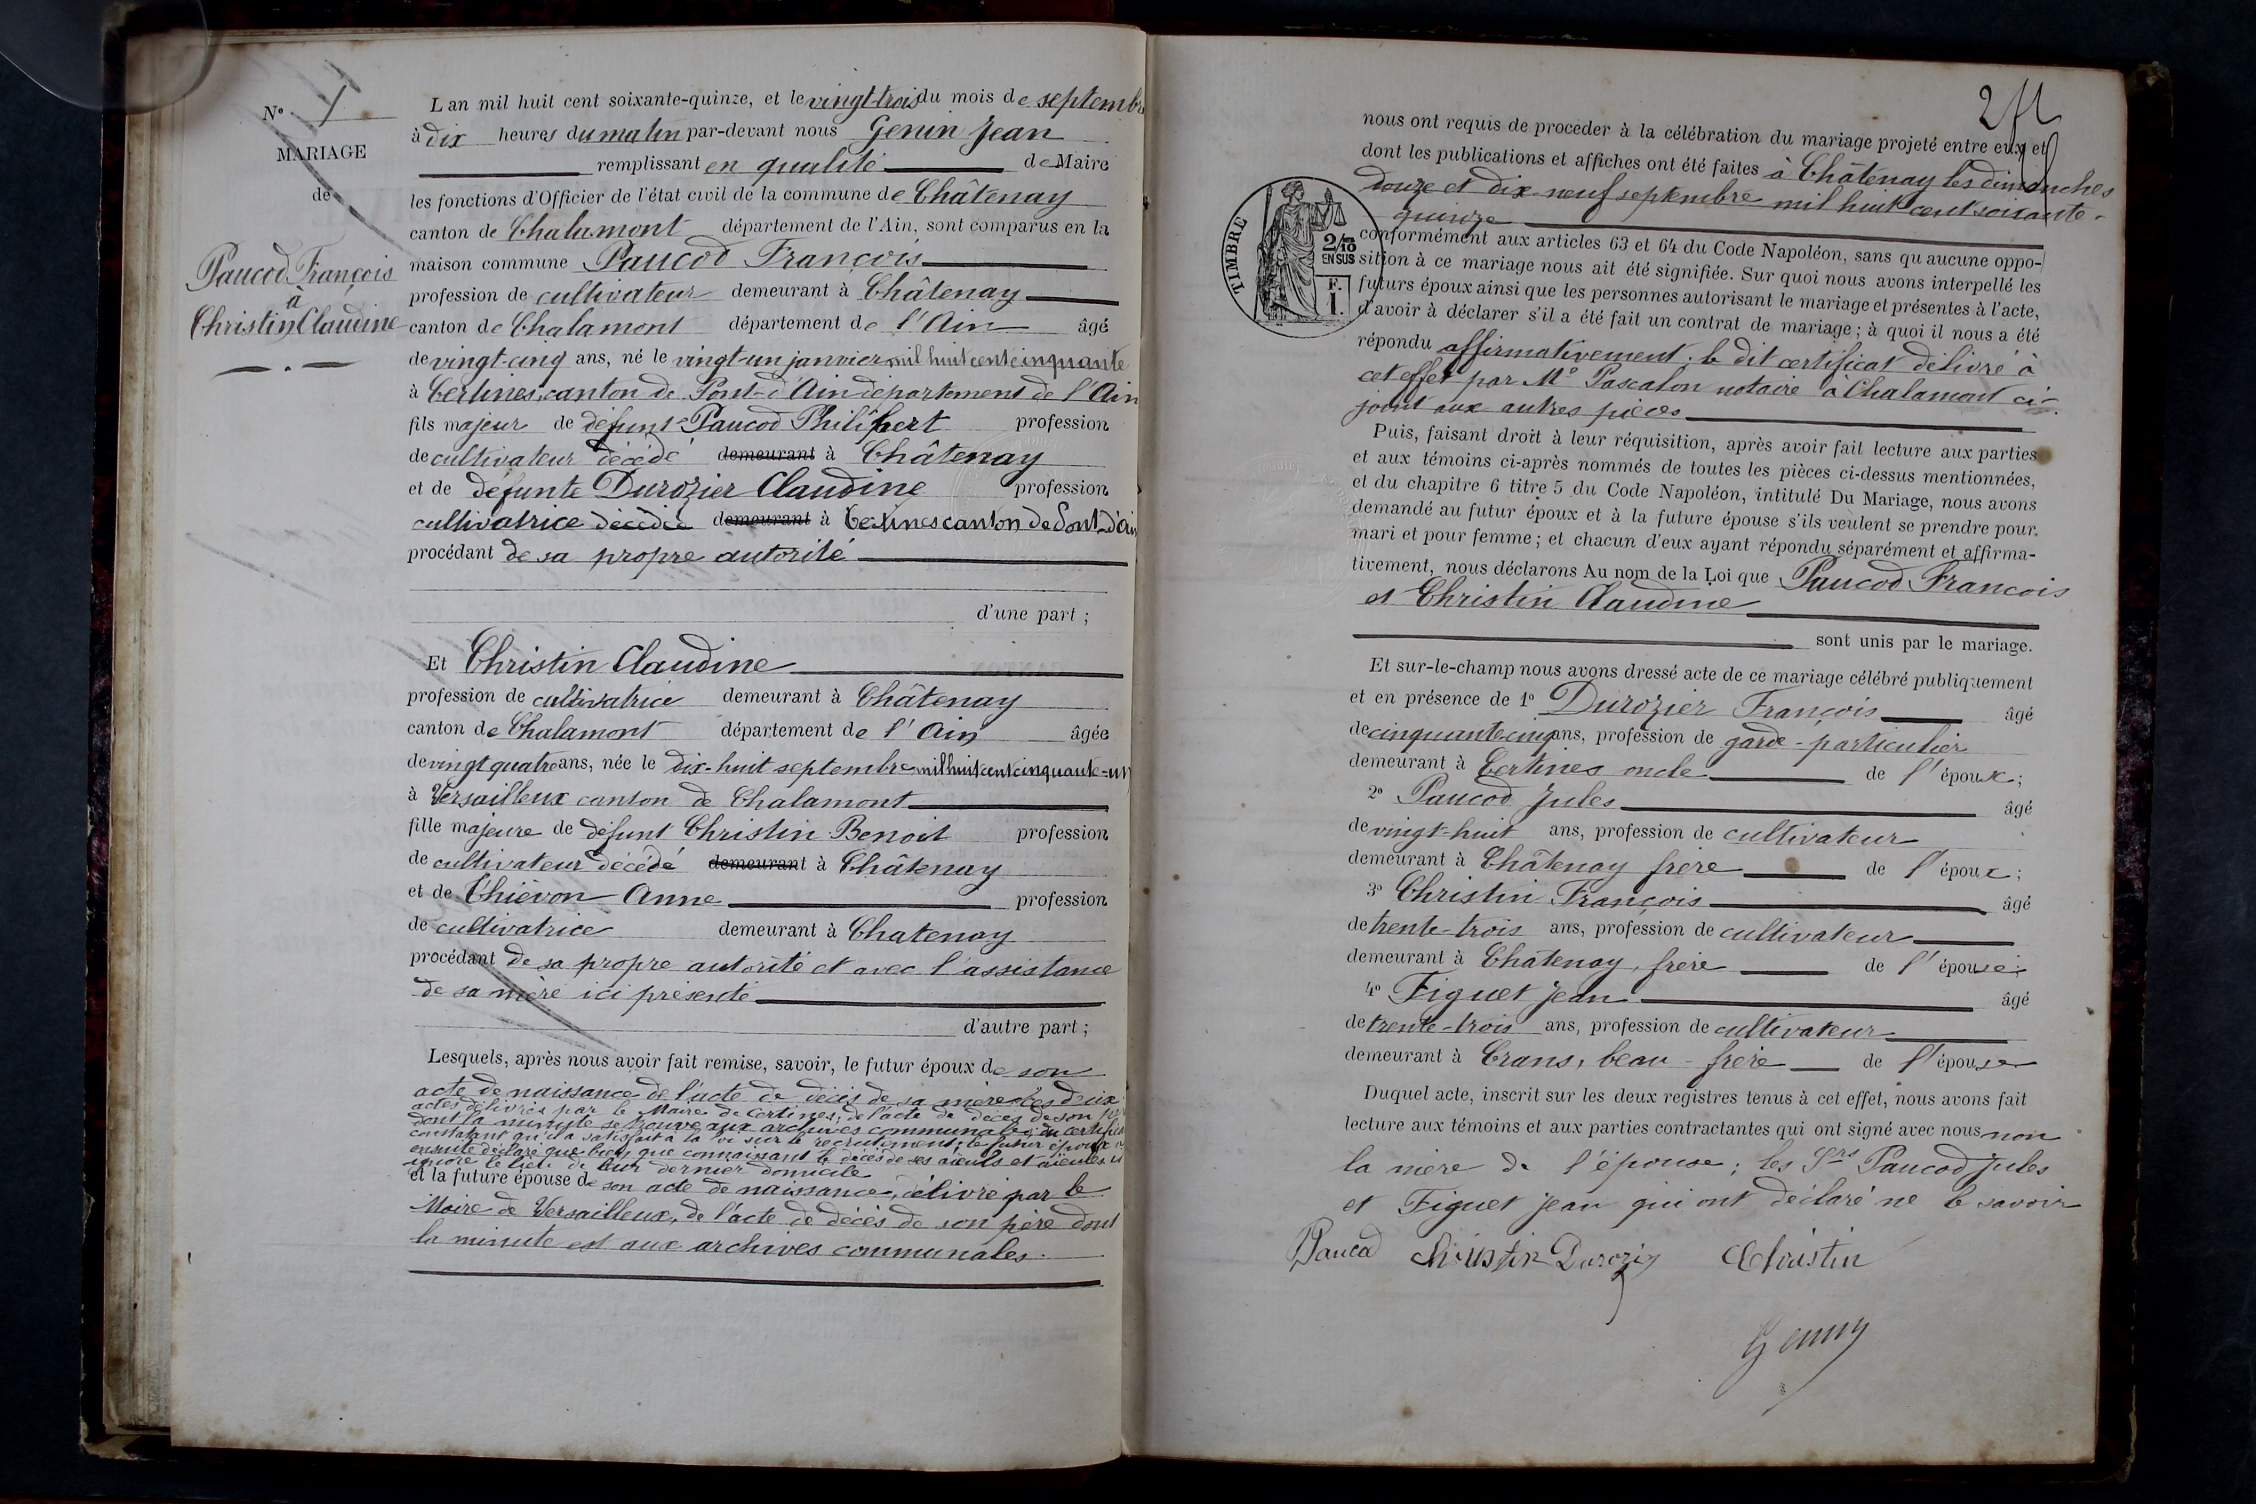 N° 1
MARIAGE
de
Paucod François
à
Christin Claudine
L'an mil huit cent soixante-quinze, et le vingt-trois du mois de septembre
à dix heures du matin par-devant nous Genin Jean
remplissant en qualité de Maire
les fonctions d'Officier de l'état civil de la commune de Châtenay
canton de Chalamont département de l'Ain, sont comparus en la
maison commune Paucod François
profession de cultivateur demeurant à Châtenay
canton de Chalamont département de l'Ain âgé
de vingt-cinq ans, né le vingt-un janvier mil huit cent cinquante
à Certines, canton de Pont-d'Ain département de l'Ain
fils majeur de défunt Paucod Philibert profession
de cultivateur décédé demeurant à Châtenay
et de défunte Durozier Claudine profession
cultivatrice décédée demeurant à Certines canton de Pont-d'Ain
procédant de sa propre autorité
d'une part ;
Et Christin Claudine
profession de cultivatrice demeurant à Châtenay
canton de Chalamont département de l'Ain âgée
de vingt quatre ans, née le dix-huit septembre mil huit cent cinquante-un
à Versailleux canton de Chalamont
fille majeure de défunt Christin Benoit profession
de cultivateur décédé demeurant à Châtenay
et de Thiévon Anne profession
de cultivatrice demeurant à Chatenay
procédant de sa propre autorité et avec l'assistance
de sa mère ici présente
d'autre part ;
Lesquels, après nous avoir fait remise, savoir, le futur époux de son
acte de naissance de l'acte de décès de sa mère ces deux
actes délivrés par le Maire de Certines, de l'acte de décès de son
dont la minute se trouve aux archives communales, du certificat
constatant qu'il a satisfait à la loi sur le recrutement ; le futur époux
ensuite déclaré que bien que connaissant le décès de ses aïeuls et aïeules il
ignore le lieu de leur dernier domicile
et la future épouse de son acte de naissance, délivré par le
Maire de Versailleux, de l'acte de décès de son père dont
la minute est aux archives communales.
nous ont requis de procéder à la célébration du mariage projeté entre eux et
dont les publications et affiches ont été faites à Châtenay les dimanches
douze et dix-neuf septembre mil huit cent soixante-
quinze
TIMBRE
2/10
EN SUS
F.
1.
conformément aux articles 63 et 64 du Code Napoléon, sans qu'aucune oppo-
sition à ce mariage nous ait été signifiée. Sur quoi nous avons interpellé les
futurs époux ainsi que les personnes autorisant le mariage et présentes à l'acte,
d'avoir à déclarer s'il a été fait un contrat de mariage ; à quoi il nous a été
répondu affirmativement. le dit certificat délivré à
cet effet par Me Pascalon notaire à Chalamont ci-
joint aux autres pièces
Puis, faisant droit à leur réquisition, après avoir fait lecture aux parties
et aux témoins ci-après nommés de toutes les pièces ci-dessus mentionnées,
et du chapitre 6 titre 5 du Code Napoléon, intitulé Du Mariage, nous avons
demandé au futur époux et à la future épouse s'ils veulent se prendre pour
mari et pour femme ; et chacun d'eux ayant répondu séparément et affirma-
tivement, nous déclarons Au nom de la Loi que Paucod François
et Christin Claudine
sont unis par le mariage.
Et sur-le-champ nous avons dressé acte de ce mariage célébré publiquement
et en présence de 1° Durozier François âgé
de cinquante-cinq ans, profession de garde-particulier
demeurant à Certines oncle de l'époux ;
2° Paucod Jules âgé
de vingt-huit ans, profession de cultivateur
demeurant à Châtenay frère de l'époux ;
3° Christin François âgé
de trente-trois ans, profession de cultivateur
demeurant à Châtenay, frère de l'épouse ;
4° Figuet Jean âgé
de trente-trois ans, profession de cultivateur
demeurant à Crans, beau-frère de l'épouse
Duquel acte, inscrit sur les deux registres tenus à cet effet, nous avons fait
lecture aux témoins et aux parties contractantes qui ont signé avec nous non
la mère de l'épouse ; les Srs Paucod Jules
et Figuet Jean qui ont déclaré ne le savoir
Paucod Christin Durozier Christin
Genin